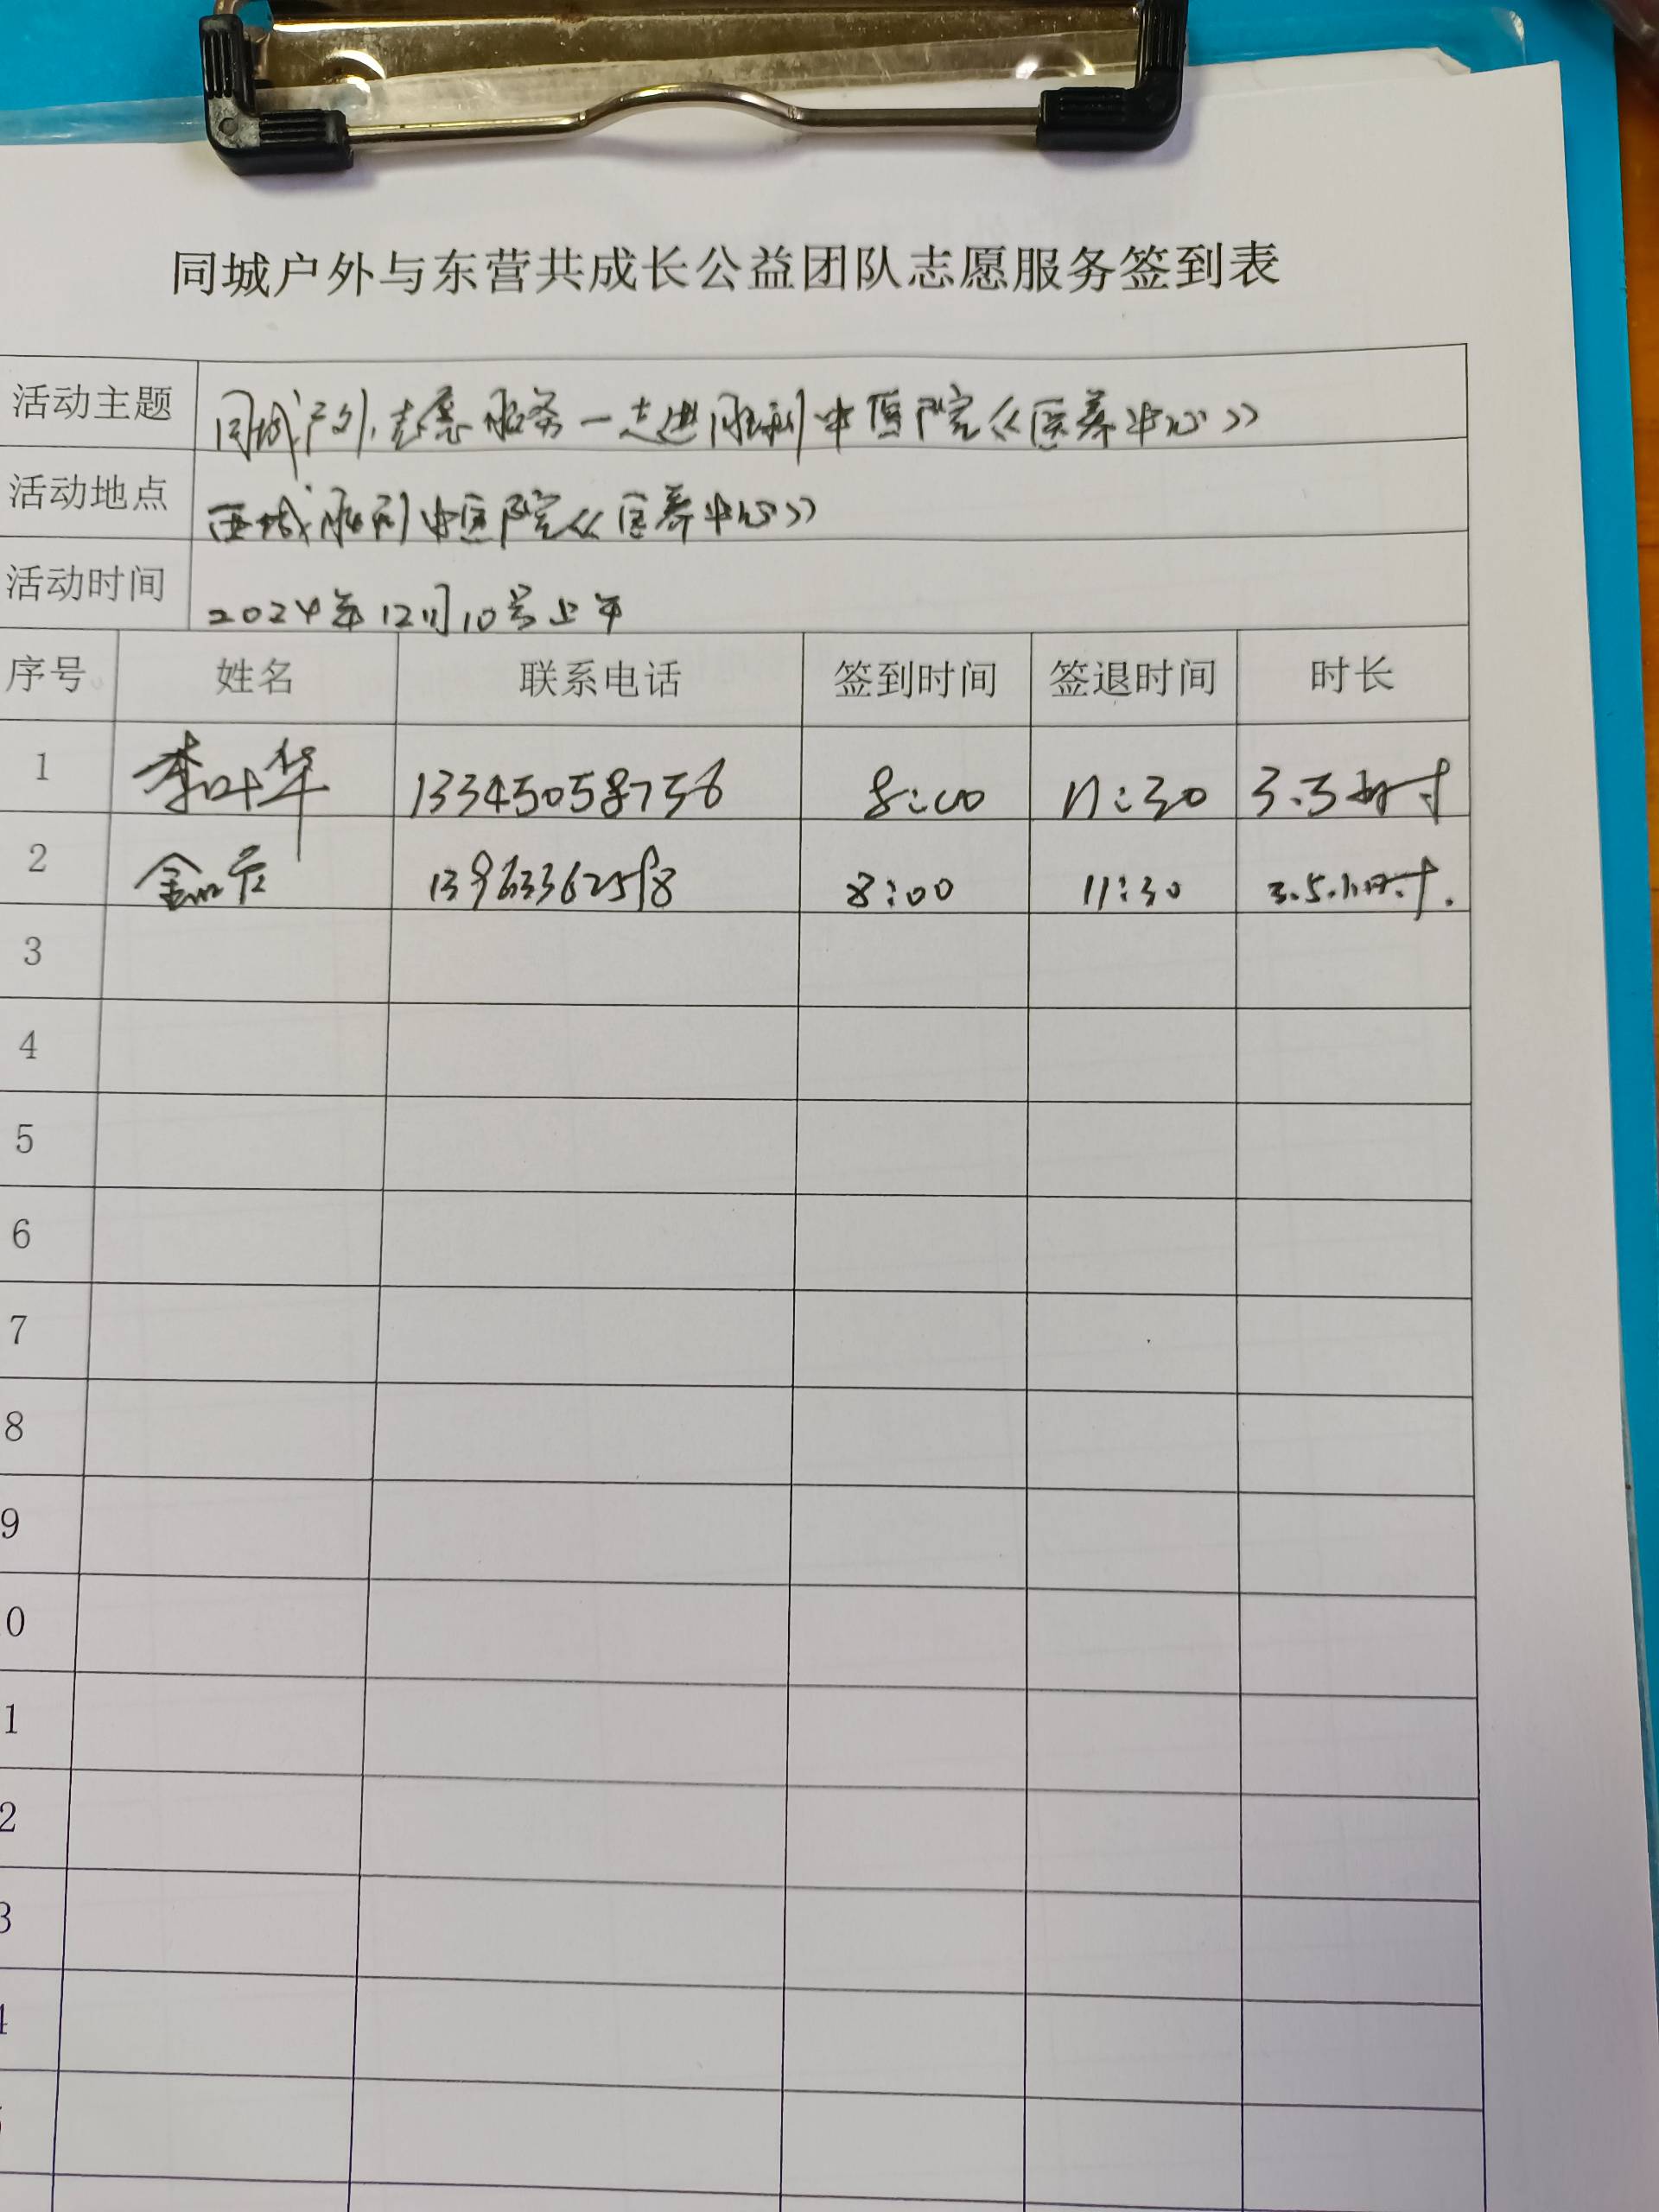 同城户外与东营共成长公益团队志愿服务签到表
活动主题 同城户外志愿服务一走进胜利中医院《医养中心》
活动地点 西城胜利中医院《医养中心》
活动时间 2024年12月10号上午
序号 姓名 联系电话 签到时间 签退时间 时长
1 李叶华 13345058756 8:00 11:30 3.5小时
2 8:00 11:30 3.5小时.
3
4
5
6
7
8
9
0
1
2
3
4